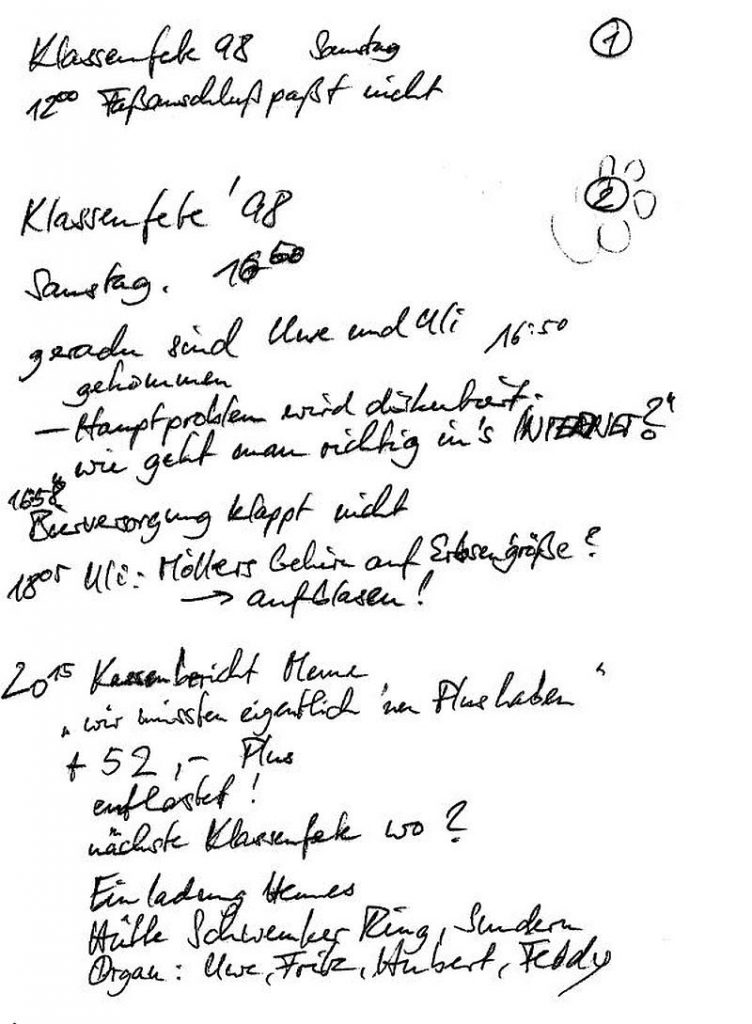 Klassenfete 98 Samstag ①
12⁰⁰ Faßanschluß paßt nicht
Klassenfete '98 ②
Samstag. 16⁵⁰
gerade sind Uwe und Uli 16:50
gekommen
— Hauptproblem wird diskutiert.
„wie geht man richtig in's INTERNET?"
16:58
Bierversorgung klappt nicht
18⁰⁵ Uli: Möllers Gehirn auf Erbsengröße?
→ aufblasen!
20¹⁵ Kassenbericht
„wir müssten eigentlich 'nen Plus haben"
+ 52,- Plus
entlastet!
nächste Klassenfete wo?
Einladung Hennes
Hütte Schwenker Ring, Sundern
Organ: Uwe, Fritz, Hubert, Teddy